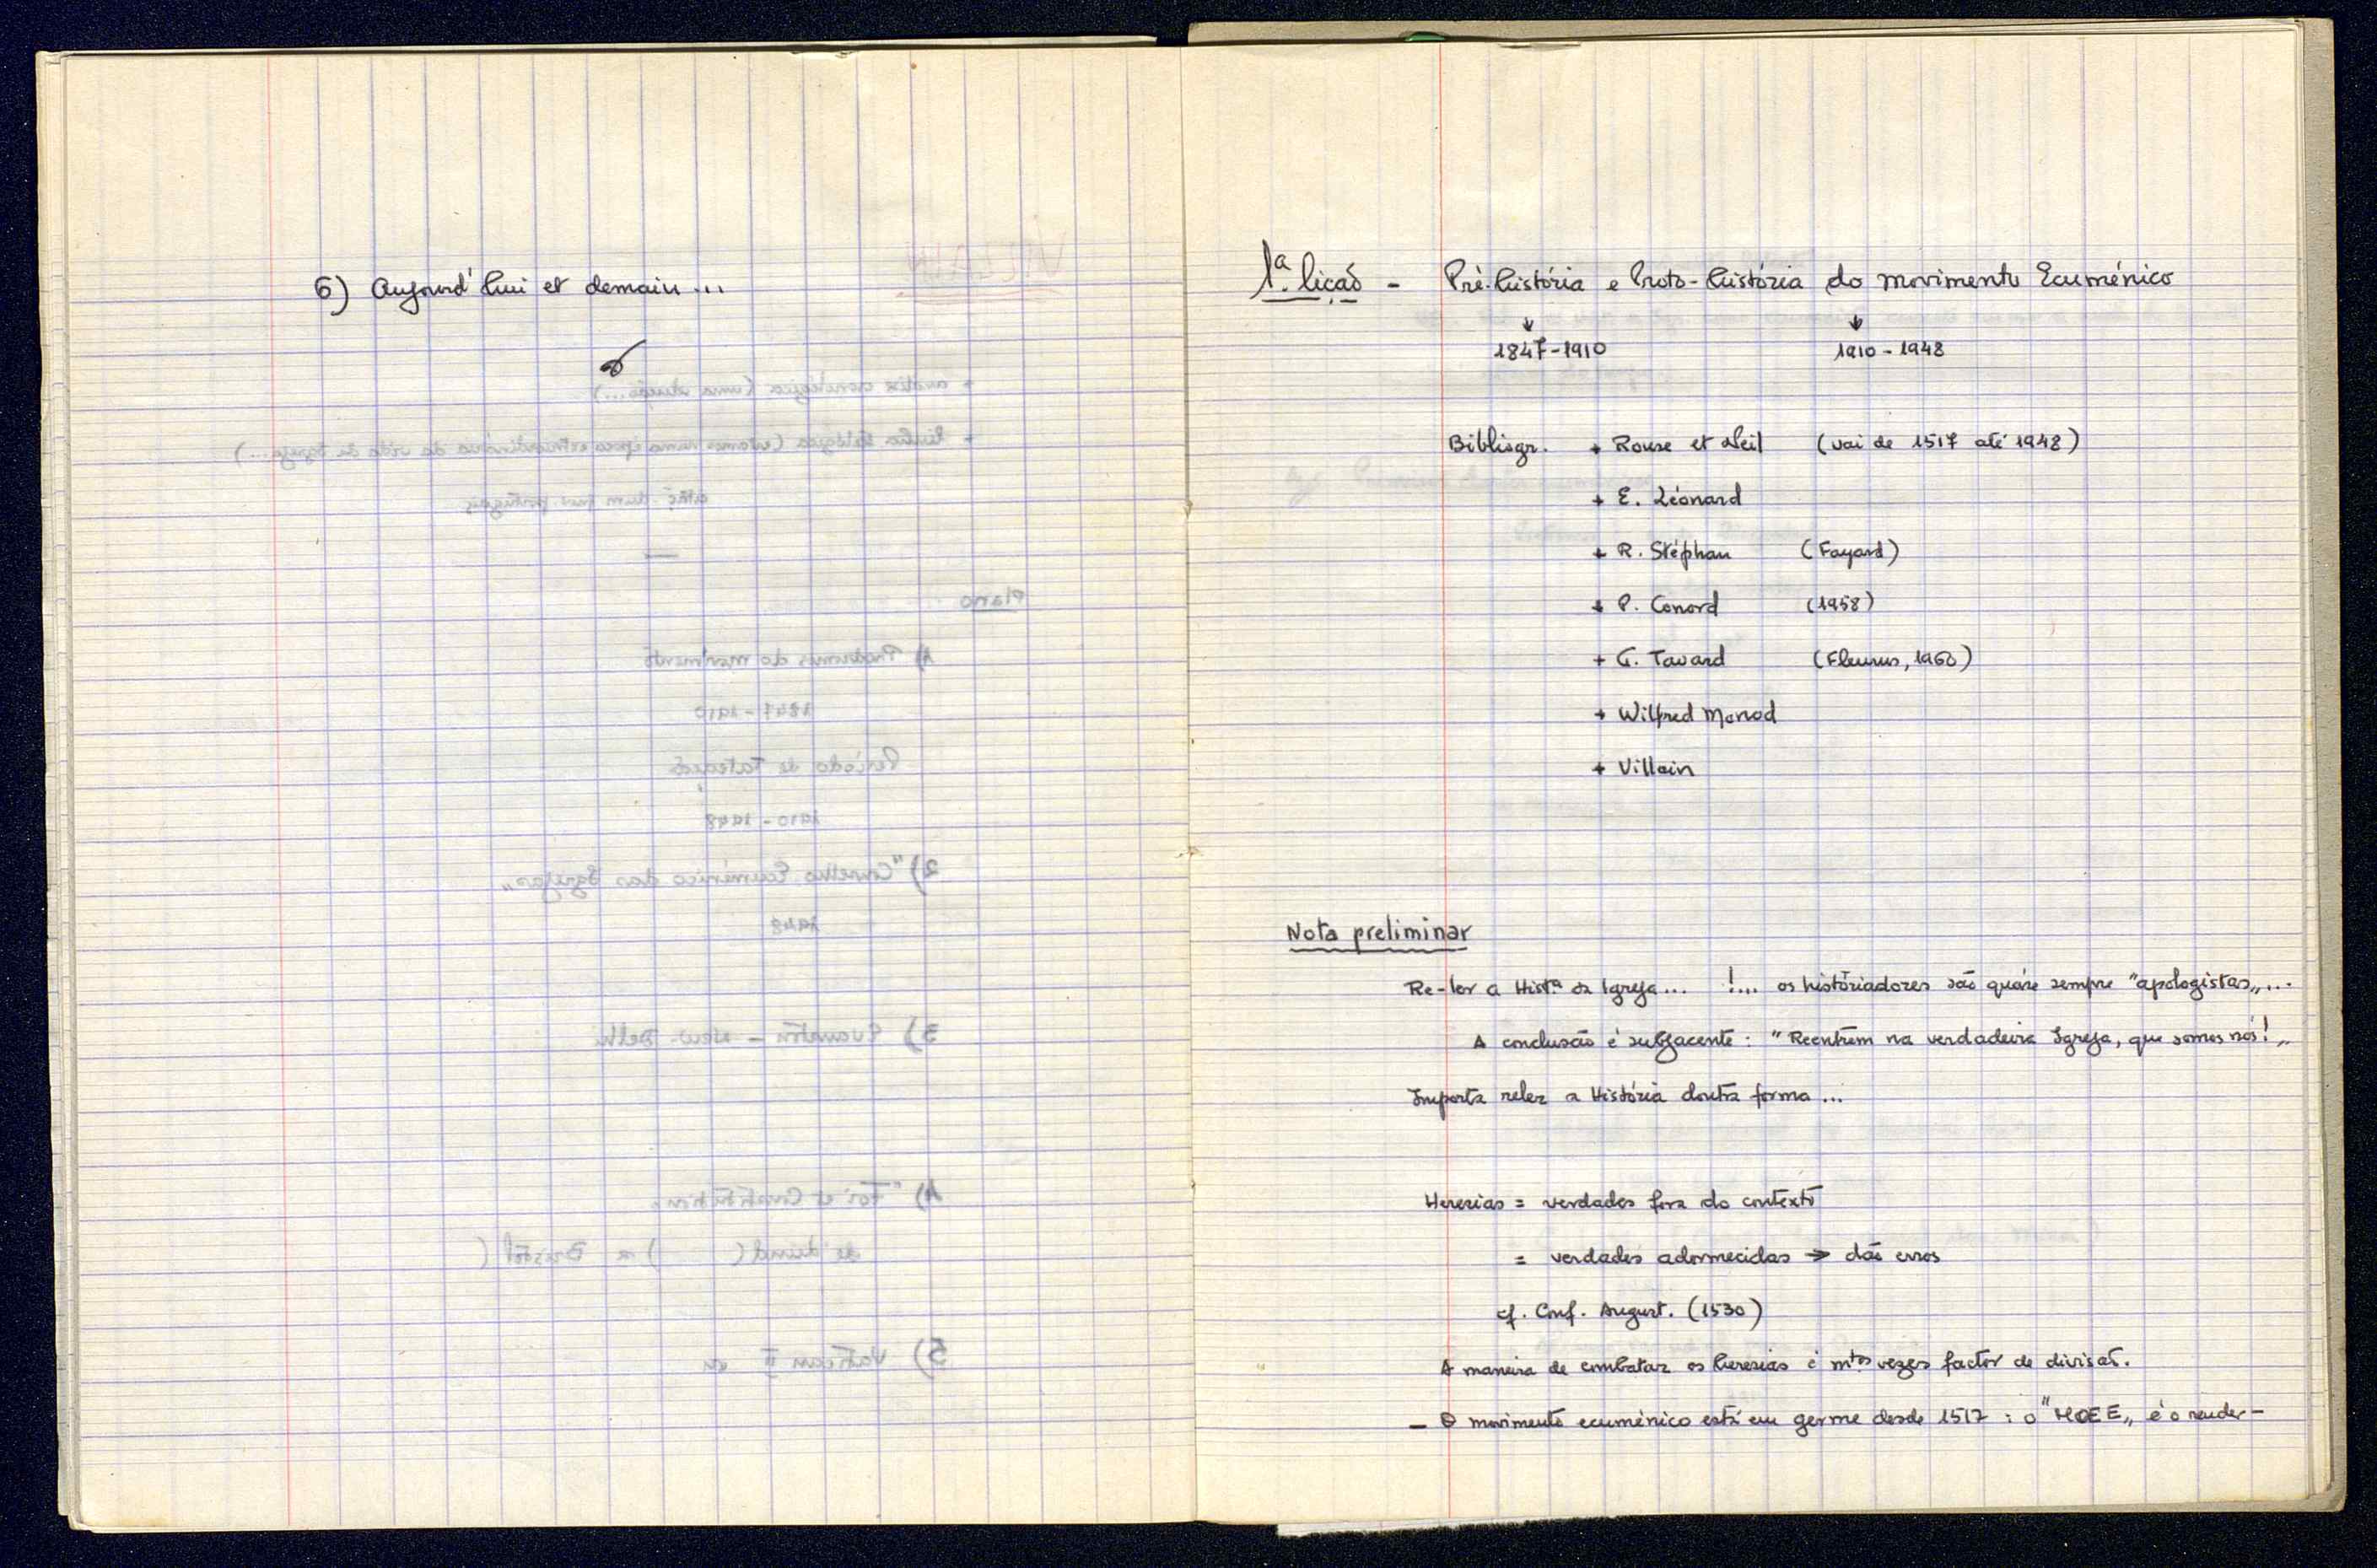 6) Aujourd'hui et demain...
1ª. lição - Pré-história e Proto-história do movimento Ecuménico
↓ ↓
1847-1910 1910-1948
Bibliogr. + Rouse et Neil (vai de 1517 até 1948)
+ E. Léonard
+ R. Stéphan (Fayard)
+ P. Conord (1958)
+ G. Tavard (Fleurus, 1960)
+ Wilfred Monod
+ Villain
Nota preliminar
Re-ler a Histª da Igreja... !... os históriadores são quáse sempre "apologistas„...
A conclusão é subjacente: "Reentrem na verdadeira Igreja, que somos nós!„
Importa reler a História doutra forma...
Heresias = verdades fora do contexto
= verdades adormecidas → dão erros
cf. Conf. August. (1530)
A maneira de combater as heresias é mtas vezes factor de divisão.
- O movimento ecuménico está em germe desde 1517: o "MOEE„ é o render-